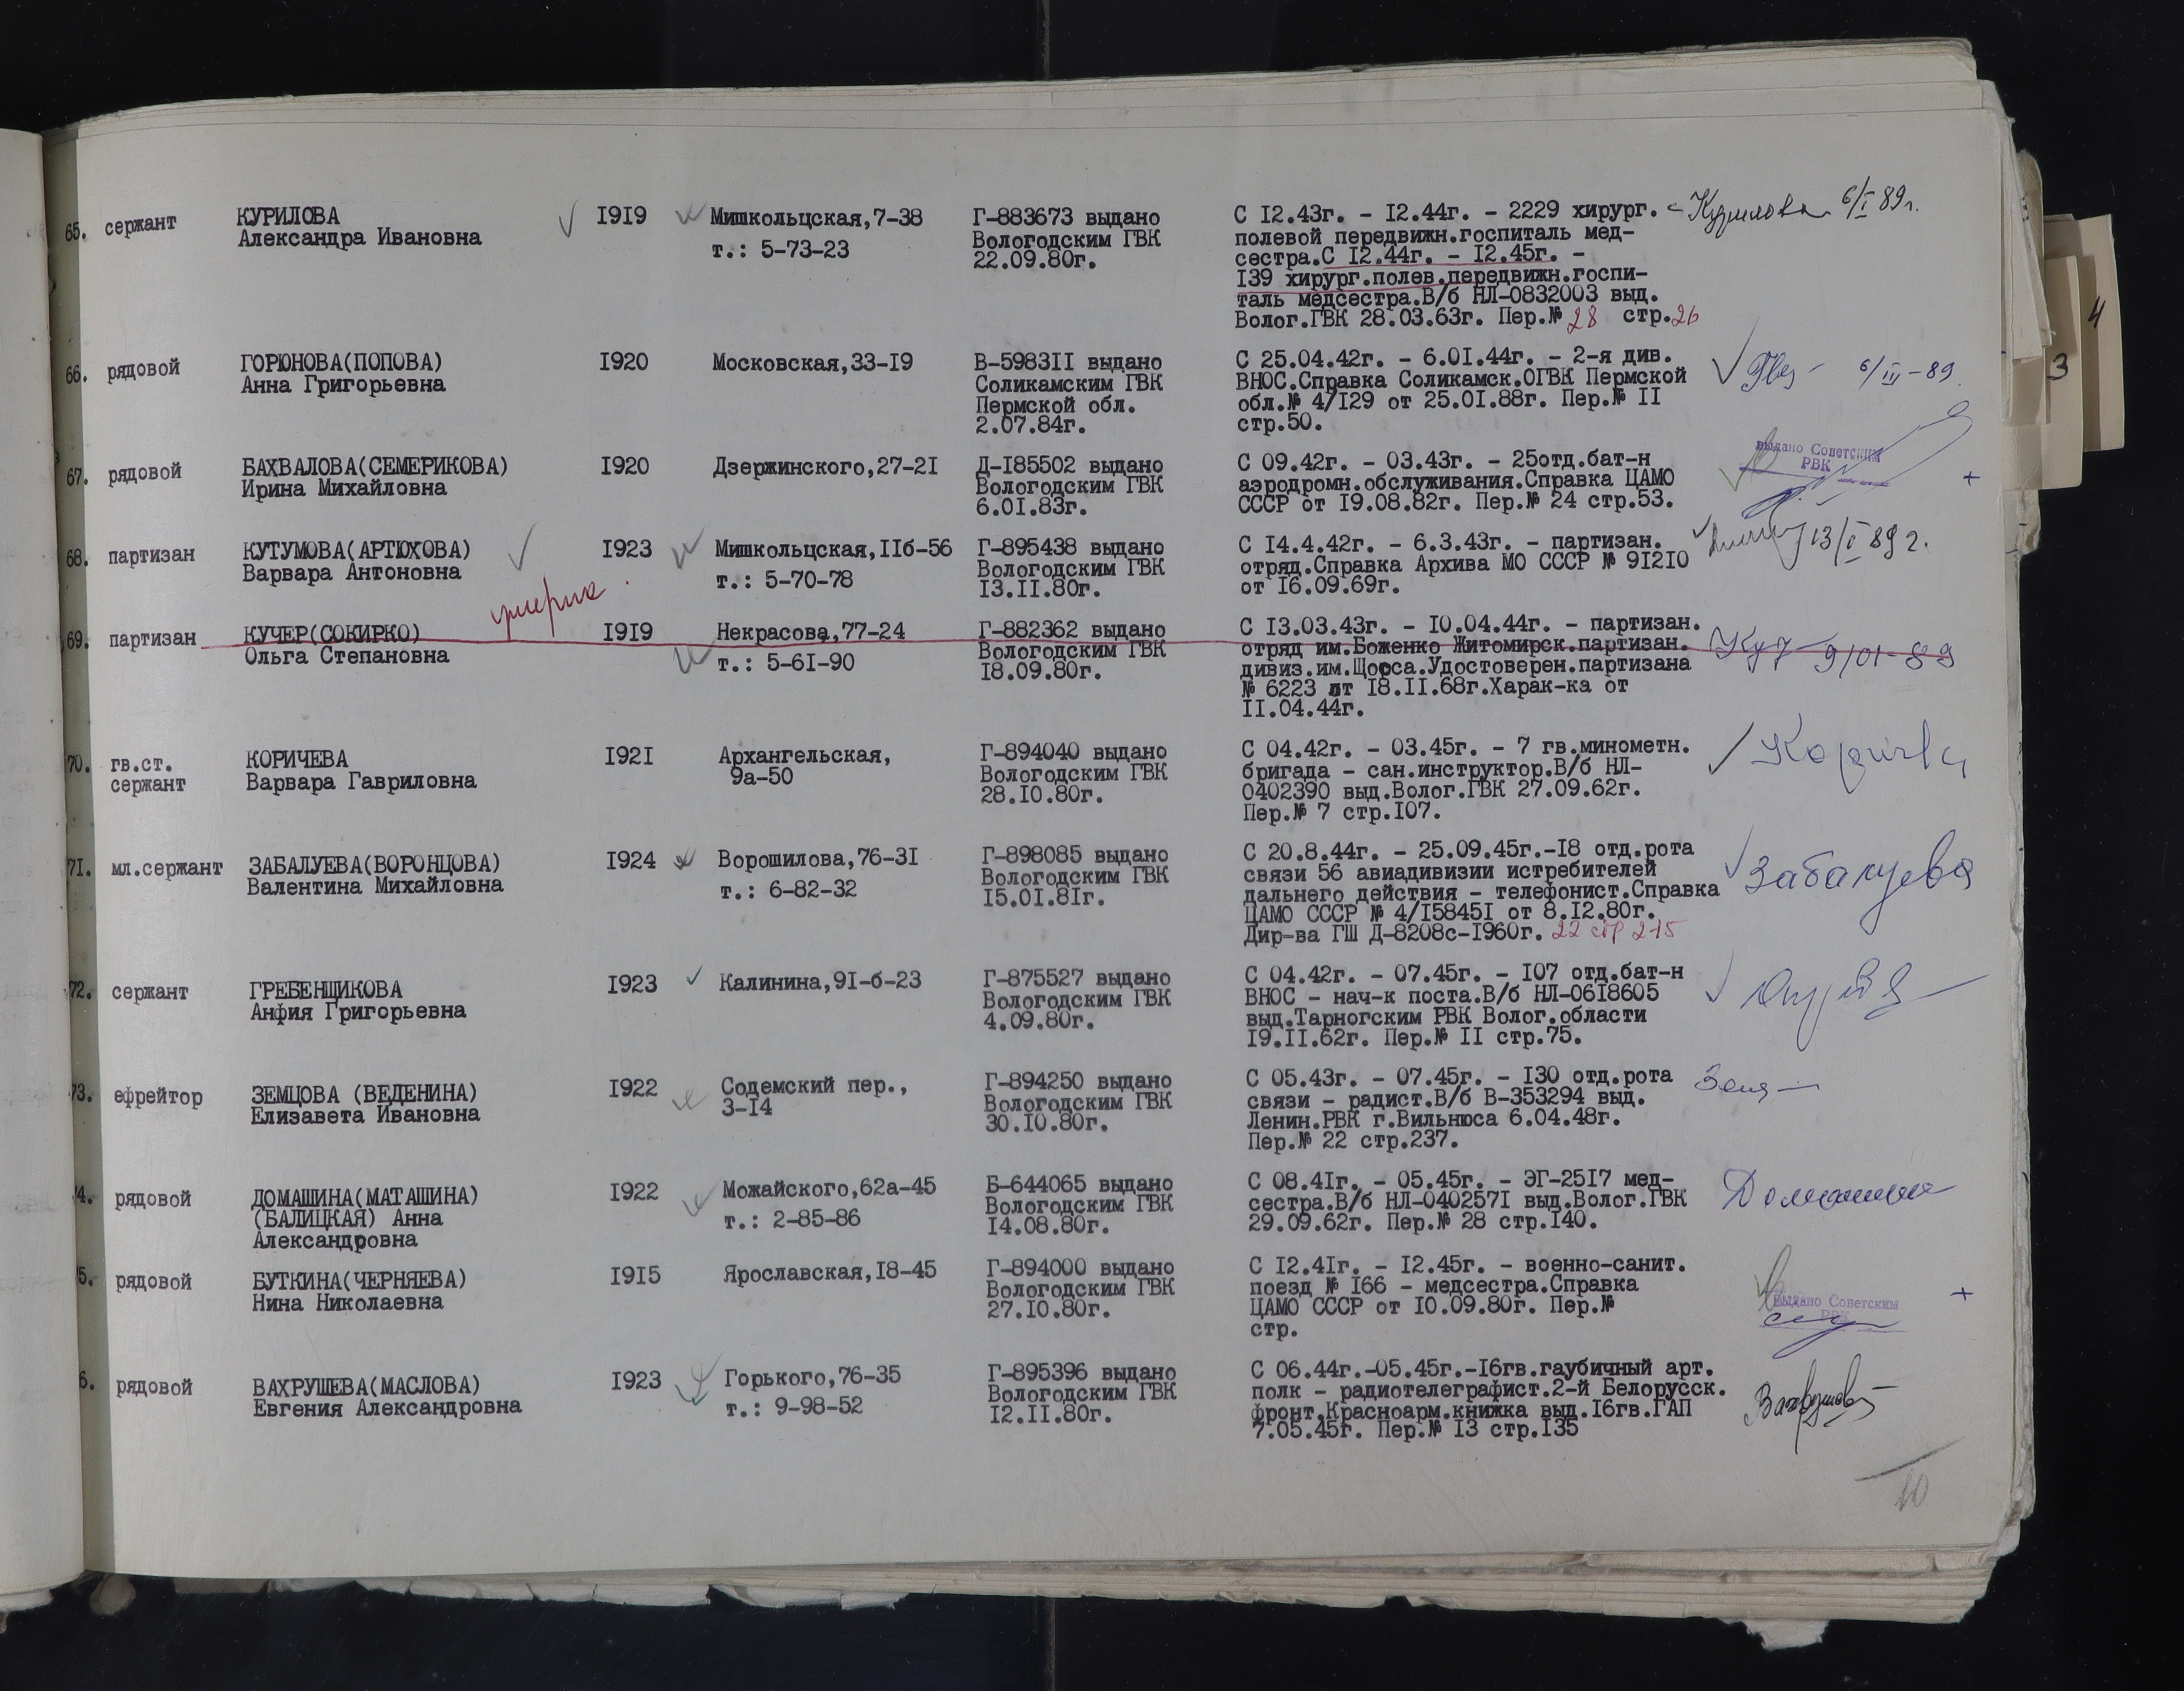 65. сержант КУРИЛОВА I9I9 Мишкольцская,7-38 Г-883673 выдано С I2.43г. - I2.44г. - 2229 хирург. Курилова 6/I 89г.
Александра Ивановна т.: 5-73-23 Вологодским ГВК полевой передвижн.госпиталь мед-
22.09.80г. сестра.С I2.44г. - I2.45г. -
I39 хирург.полев.передвижн.госпи-
таль медсестра.В/б НЛ-0832003 выд.
Волог.ГВК 28.03.63г. Пер.№ 28 стр.26
66. рядовой ГОРЮНОВА(ПОПОВА) I920 Московская,33-I9 В-5983II выдано С 25.04.42г. - 6.0I.44г. - 2-я див. 6/III-89
Анна Григорьевна Соликамским ГВК ВНОС.Справка Соликамск.ОГВК Пермской
Пермской обл. обл.№ 4/I29 от 25.0I.88г. Пер.№ II
2.07.84г. стр.50.
67. рядовой БАХВАЛОВА(СЕМЕРИКОВА) I920 Дзержинского,27-2I Д-I85502 выдано С 09.42г. - 03.43г. - 25отд.бат-н выдано Советским
Ирина Михайловна Вологодским ГВК аэродромн.обслуживания.Справка ЦАМО РВК +
6.0I.83г. СССР от I9.08.82г. Пер.№ 24 стр.53.
68. партизан КУТУМОВА(АРТЮХОВА) I923 Мишкольцская,IIб-56 Г-895438 выдано С I4.4.42г. - 6.3.43г. - партизан. 13/I 89г.
Варвара Антоновна т.: 5-70-78 Вологодским ГВК отряд.Справка Архива МО СССР № 9I2I0
I3.II.80г. от I6.09.69г.
умерла
69. партизан КУЧЕР(СОКИРКО) I9I9 Некрасова,77-24 Г-882362 выдано С I3.03.43г. - I0.04.44г. - партизан.
Ольга Степановна т.: 5-6I-90 Вологодским ГВК отряд им.Боженко Житомирск.партизан. 9/01-89
I8.09.80г. дивиз.им.Щорса.Удостоверен.партизана
№ 6223 от I8.II.68г.Харак-ка от
II.04.44г.
70. гв.ст. КОРИЧЕВА I92I Архангельская, Г-894040 выдано С 04.42г. - 03.45г. - 7 гв.минометн. Коричева
сержант Варвара Гавриловна 9а-50 Вологодским ГВК бригада - сан.инструктор.В/б НЛ-
28.I0.80г. 0402390 выд.Волог.ГВК 27.09.62г.
Пер.№ 7 стр.I07.
7I. мл.сержант ЗАБАЛУЕВА(ВОРОНЦОВА) I924 Ворошилова,76-3I Г-898085 выдано С 20.8.44г. - 25.09.45г.-I8 отд.рота Забалуева
Валентина Михайловна т.: 6-82-32 Вологодским ГВК связи 56 авиадивизии истребителей
I5.0I.8Iг. дальнего действия - телефонист.Справка
ЦАМО СССР № 4/I5845I от 8.I2.80г.
Дир-ва ГШ Д-8208с-I960г. 22 стр 215
72. сержант ГРЕБЕНЩИКОВА I923 Калинина,9I-б-23 Г-875527 выдано С 04.42г. - 07.45г. - I07 отд.бат-н
Анфия Григорьевна Вологодским ГВК ВНОС - нач-к поста.В/б НЛ-06I8605
4.09.80г. выд.Тарногским РВК Волог.области
I9.II.62г. Пер.№ II стр.75.
73. ефрейтор ЗЕМЦОВА (ВЕДЕНИНА) I922 Содемский пер., Г-894250 выдано С 05.43г. - 07.45г. - I30 отд.рота
Елизавета Ивановна 3-I4 Вологодским ГВК связи - радист.В/б В-353294 выд.
30.I0.80г. Ленин.РВК г.Вильнюса 6.04.48г.
Пер.№ 22 стр.237.
4. рядовой ДОМАШИНА(МАТАШИНА) I922 Можайского,62а-45 Б-644065 выдано С 08.4Iг. - 05.45г. - ЭГ-25I7 мед- Домашина
(БАЛИЦКАЯ) Анна т.: 2-85-86 Вологодским ГВК сестра.В/б НЛ-040257I выд.Волог.ГВК
Александровна I4.08.80г. 29.09.62г. Пер.№ 28 стр.I40.
5. рядовой БУТКИНА(ЧЕРНЯЕВА) I9I5 Ярославская,I8-45 Г-894000 выдано С I2.4Iг. - I2.45г. - военно-санит.
Нина Николаевна Вологодским ГВК поезд № I66 - медсестра.Справка выдано Советским +
27.I0.80г. ЦАМО СССР от I0.09.80г. Пер.№ РВК
стр.
6. рядовой ВАХРУШЕВА(МАСЛОВА) I923 Горького,76-35 Г-895396 выдано С 06.44г.-05.45г.-I6гв.гаубичный арт.
Евгения Александровна т.: 9-98-52 Вологодским ГВК полк - радиотелеграфист.2-й Белорусск. Вахрушева
I2.II.80г. фронт.Красноарм.книжка выд.I6гв.ГАП
7.05.45г. Пер.№ I3 стр.I35
10
4
3